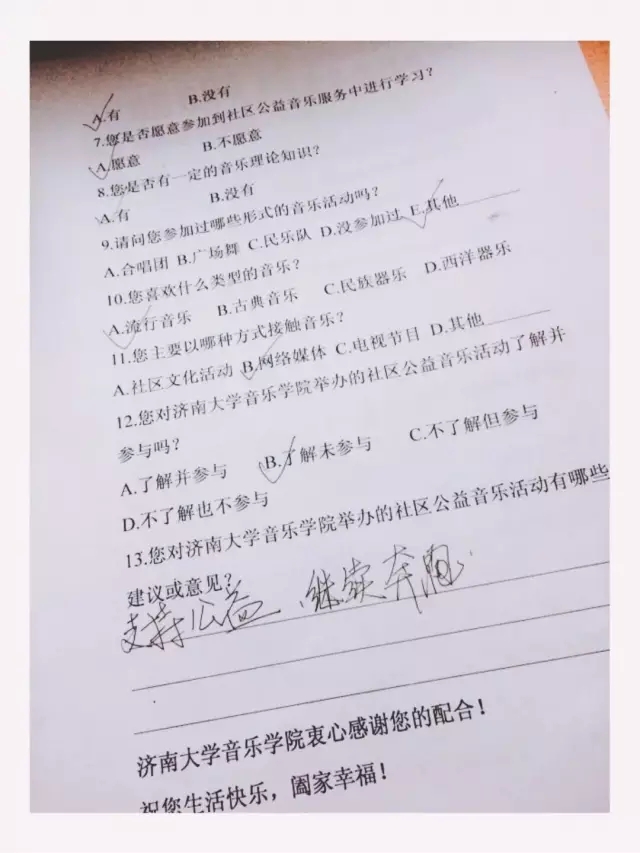 A.有 B.没有
7.您是否愿意参加到社区公益音乐服务中进行学习？
A.愿意 B.不愿意
8.您是否有一定的音乐理论知识？
A.有 B.没有
9.请问您参加过哪些形式的音乐活动吗？
A.合唱团 B.广场舞 C.民乐队 D.没参加过 E.其他
10.您喜欢什么类型的音乐？
A.流行音乐 B.古典音乐 C.民族器乐 D.西洋器乐
11.您主要以哪种方式接触音乐？
A.社区文化活动 B.网络媒体 C.电视节目 D.其他
12.您对济南大学音乐学院举办的社区公益音乐活动了解并
参与吗？
A.了解并参与 B.了解未参与 C.不了解但参与
D.不了解也不参与
13.您对济南大学音乐学院举办的社区公益音乐活动有哪些
建议或意见？
支持公益、继续奔跑.
济南大学音乐学院衷心感谢您的配合！
祝您生活快乐，阖家幸福！